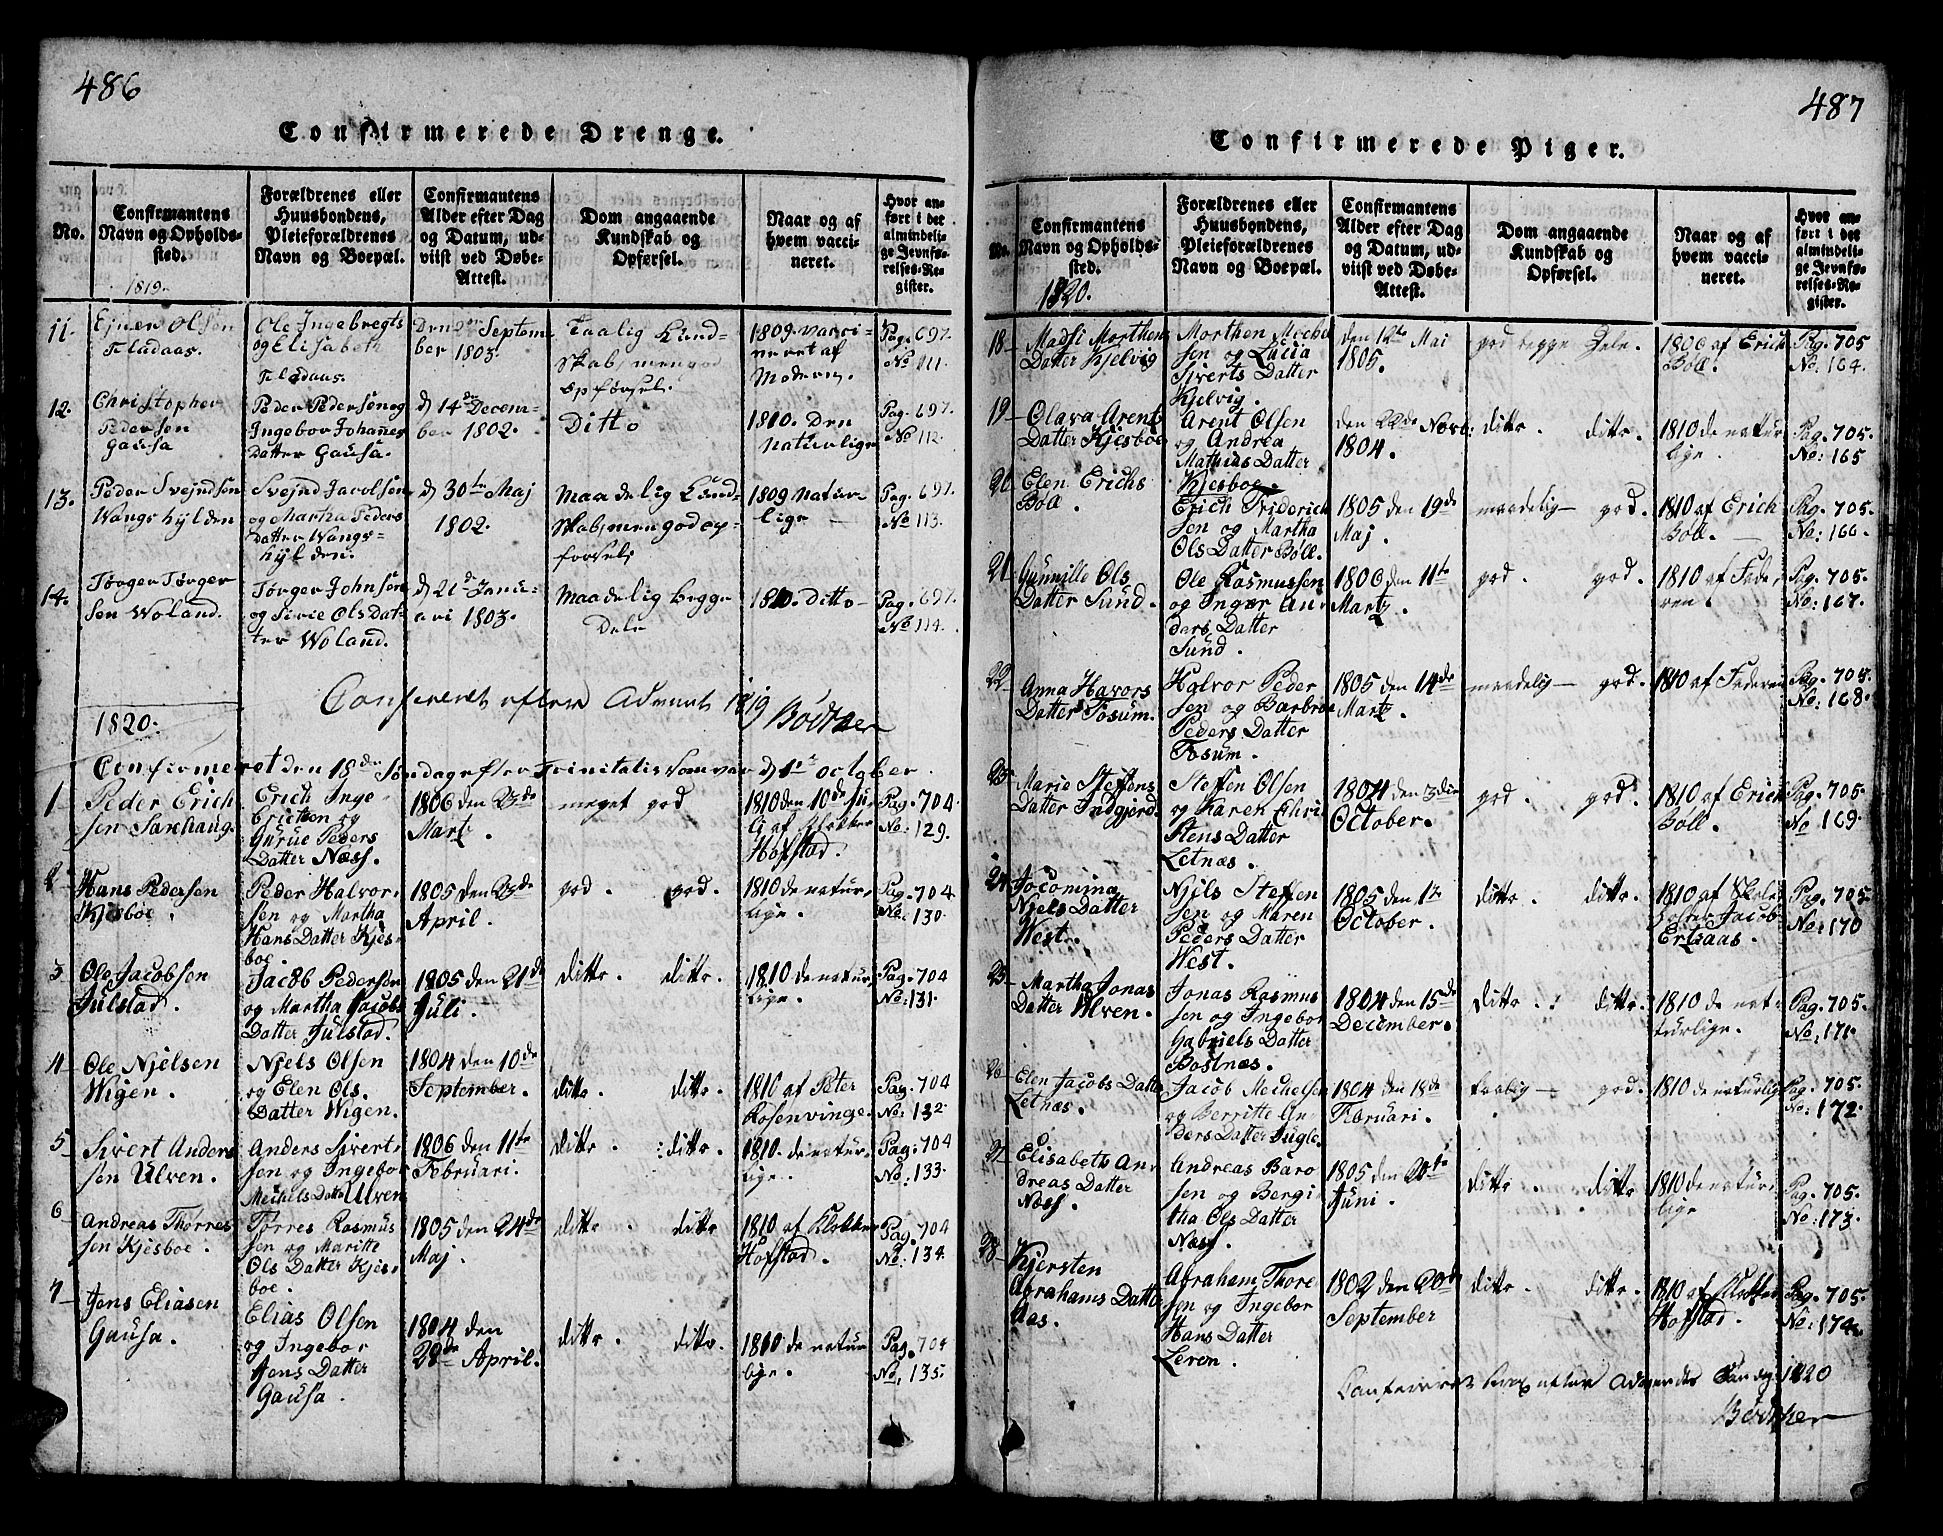 486
Confirmerede Drenge.
No.
Confirmantens
Navn og Opholds-
sted.
1819.
Forældrenes eller
Huusbondens,
Pleieforældrenes
Navn og Boepæl.
Confirmantens
Alder efter Dag
og Datum, ud-
viist ved Døbe-
Attest.
Dom angaaende
Kundskab og
Opførsel.
Naar og af
hvem vacci-
neret.
Hvor an-
ført i det
almindeli-
ge Jevnfø-
relses-Re-
gister.
11.
Ejner Olsen
Teladaas.
Ole Ingebregts
og Elisabeth
Teladaas.
Septem
ber 1803.
Taalig Kund-
skab, men god
opførsel.
1809 vacci-
neret af
Moderen.
Pag. 697.
No 111.
12.
Christopher
Pedersen
Gausa
Peder Pedersen og
Ingebor Johannes
Datter Gausa.
d 14de Decem-
ber 1802.
Ditto
1810. Den
naturlige
Pag. 697.
No 112.
13.
Peder Svejndsen
Wangshylden
Svejnd Jacobsen
og Martha Peders
datter Wangs-
hylden.
d 30te Maj
1802.
Maadelig Kund-
skab, men god op-
førsel
1809 natur-
lige
Pag. 697.
No 113.
14.
Tørger Tørger
sen Woland.
Tørger Johnsen
og Sirie Ols Dat-
ter Woland.
d 21de Janu-
ari 1803.
Maadelig begge
Dele
1810. Ditto
Pag. 697.
No 114.
Confereret efter Advent 1819 Bödtker
1820.
Confirmeret den 18de Søndag efter Trinitatis som var d 1te october.
1
Peder Erich
sen Saxhaug.
Erich Inge
brictsen og
Gurue Peders
Datter Næss.
1806 den 23de
Martz.
meget god
1810 den 10de Ju-
li af Klokker
Hofstad.
Pag. 704.
No: 129.
2
Hans Pedersen
Kjesboe.
Peder Halvor-
sen og Martha
Hans Datter Kjes-
boe.
1805 den 23de
April.
god. god.
1810 de natur-
lige.
Pag. 704
No: 130.
3
Ole Jacobsen
Julstad.
Jacob Pedersen
og Martha Jacobs
Datter Julstad.
1805 den 21de
Juli.
ditto. ditto.
1810 de natur-
lige.
Pag. 704
No: 131.
4
Ole Njelsen
Wigen.
Njels Olsen
og Elen Ols.
Datter Wigen.
1804 den 10de
September.
ditto. ditto.
1810 af Peter
Rosenvinge
Pag. 704
No: 132.
5
Sivert Anders
sen Ulven.
Anders Sivert-
sen og Ingebor
Mechels Datter Ulven
1806 den 11te
Februari.
ditto. ditto.
1810. de natur-
lige.
Pag. 704
No: 133.
6
Andreas Thørres
sen Kjesboe.
Tørres Rasmus
sen og Maritte
Ols Datter Kjes-
boe.
1805 den 24de
Maj.
ditto. ditto
1810 af Klokker
Hofstad.
Pag. 704
No: 134.
7
Jens Eliasen
Gausa.
Elias Olsen
og Ingebor
Jens Datter
Gausa.
1804 den
28de April.
ditto. ditto.
1810 de natur
lige.
Pag. 704
No: 135.
487
Confirmerede Piger.
No.
Confirmantens
Navn og Opholds-
sted.
1820.
Forældrenes eller
Huusbondens,
Pleieforældrenes
Navn og Boepæl.
Confirmantens
Alder efter Dag
og Datum, ud-
viist ved Døbe-
Attest.
Dom angaaende
Kundskab og
Opførsel.
Naar og af
hvem vacci-
neret.
Hvor an-
ført i det
almindeli-
ge Jevnfø-
relses-Re-
gister.
18
Madsi Morthens
Datter Kjelvig
Morthen Mechel
sen og Lucia
Siverts Datter
Kjelvig.
den 12te Mai
1805.
god begge Dele.
1806 af Erich
Böll.
Pag. 705
No: 164.
19
Olava Arent
Datter Kjesboe
Arent Olsen
og Andrea
Mathias Datter
Kjesboe.
den 22de Novb:
1804.
ditto. ditto.
1810 de natur
lige.
Pag. 705.
No: 165
20
Elen Erichs
Böll.
Erich Friderich
sen og Martha
Ols Datter Böll.
1805 den 19de
Maj.
maadelig god.
1810 af Erich
Böll.
Pag. 705.
No: 166.
21
Gunnille Ols
Datter Sund.
Ole Rasmussen
og Inger An-
ders Datter
Sund.
1806 den 11te
Martz.
god. god.
1810 af Fade
ren.
Pag. 705.
No: 167.
22
Anna Havors
Datter Fosum.
Halvor Peder
sen og Barbroe
Peders Datter
Fosum.
1805 den 14de
Martz.
maadelig god.
1810 af Faderen
Pag. 705.
No: 168.
23
Marie Steffens
Datter Indgjord.
Steffen Olsen
og Karen Chri
stens Datter
Letnæs.
1804 den 3die
October.
god. god.
1810 af Erich
Böll.
Pag. 705.
No 169.
24
Jocomina
Njels Datter
West.
Njels Steffen
sen og Maren
Peders Datter
West.
1805 den 1te
October.
ditto. ditto.
1810 af Skole-
Jacob
Ertsaas.
Pag. 705.
No: 170
25
Martha Jonas
Datter Ulven.
Jonas Rasmus
sen og Ingebor
Gabriels Datter
Bostnæs.
1804 den 15de
December.
ditto. ditto.
1810 de na-
turlige.
Pag. 705.
No: 171.
26
Elen Jacobs Datter
Letnæs.
Jacob Mechelsen
og Berritte An
ders Datter Jugle.
1804 den 18de
Februari.
taalig god.
1810 de naturlig
Pag. 705.
No: 172.
27
Elisabeth An-
dreas Datter
Næss.
Andreas Baro
sen og Bergi-
tha Ols Datter
Næss.
1805 den 20te
Juni.
ditto. ditto.
1810 de natur-
lige
Pag. 705.
No: 173.
28
Kjersten
Abrahams Datter
Aas.
Abraham Thore
sen og Ingebor
Hans Datter
Leren.
1802 den 20de
September
ditto. ditto.
1810 af Klokker
Hofstad.
Pag. 705.
No: 174.
1820
Bödtker